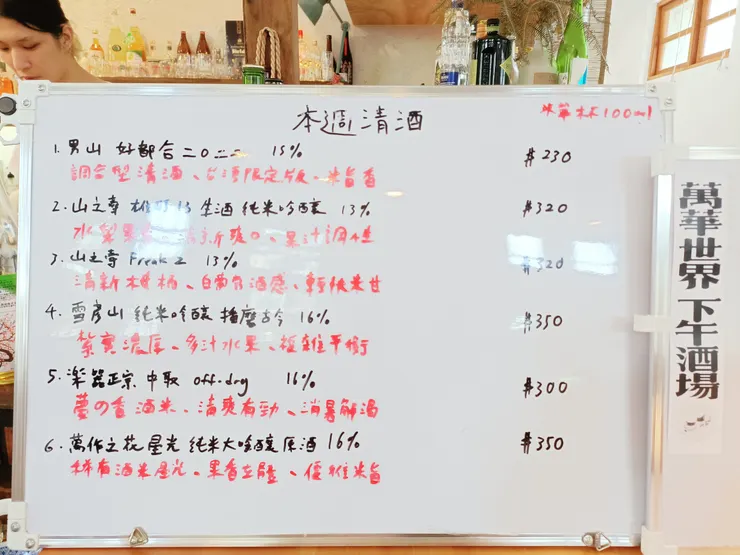 本週清酒
每單杯100ml
1. 男山 好都合 二〇二二 15% $230
調合型清酒、台灣限定版、米旨香
2. 山之壽 雄町13 生酒 純米吟釀 13% $320
水梨果香、清新爽口、果汁調性
3. 山之壽 Freak 2 13% $320
清新檸檬、白葡萄酒感、輕快米甘
4. 雪彦山 純米吟釀 播磨古今 16% $350
紮實濃厚、多汁水果、複雜平衡
5. 楽器正宗 中取 off-dry 16% $300
夢の香酒米、清爽有勁、消暑解渴
6. 萬作之花 星光 純米大吟釀原酒 16% $350
稀有酒米星光、果香立體、優雅米旨
萬華世界 下午酒場